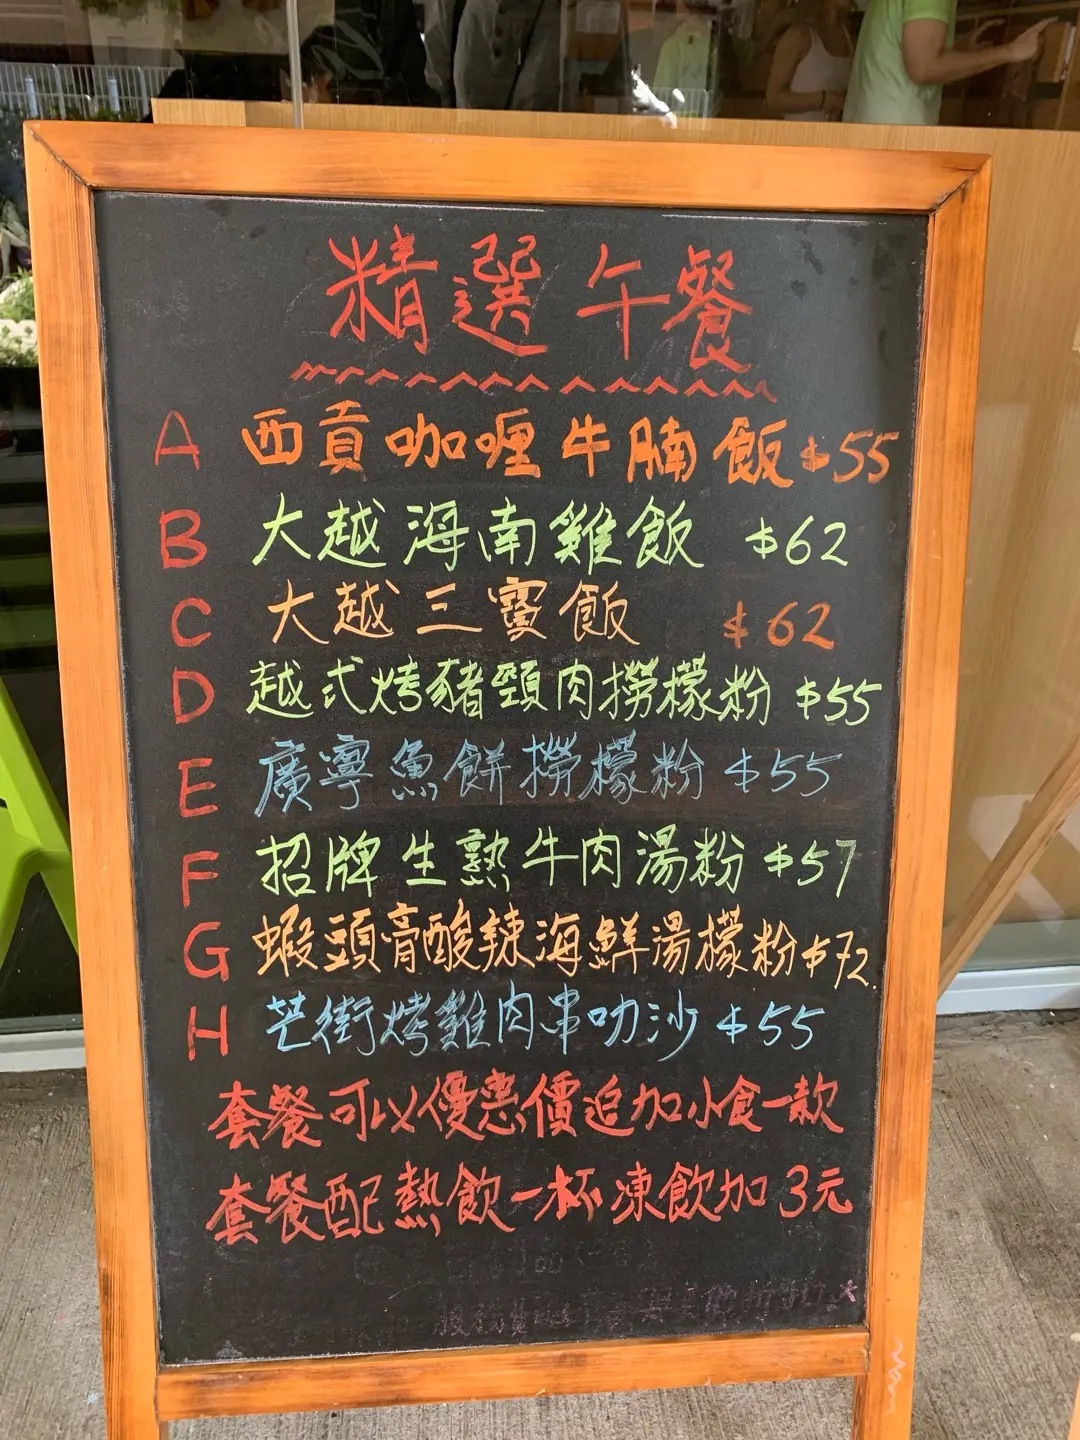 精選午餐
A 西貢咖喱牛腩飯 $55
B 大越海南雞飯 $62
C 大越三寶飯 $62
D 越式烤豬頸肉撈檬粉 $55
E 廣寧魚餅撈檬粉 $55
F 招牌生熟牛肉湯粉 $57
G 蝦頭膏酸辣海鮮湯檬粉 $72
H 芒街烤雞肉串叻沙 $55
套餐可以優惠價追加小食一款
套餐配熱飲一杯凍飲加3元